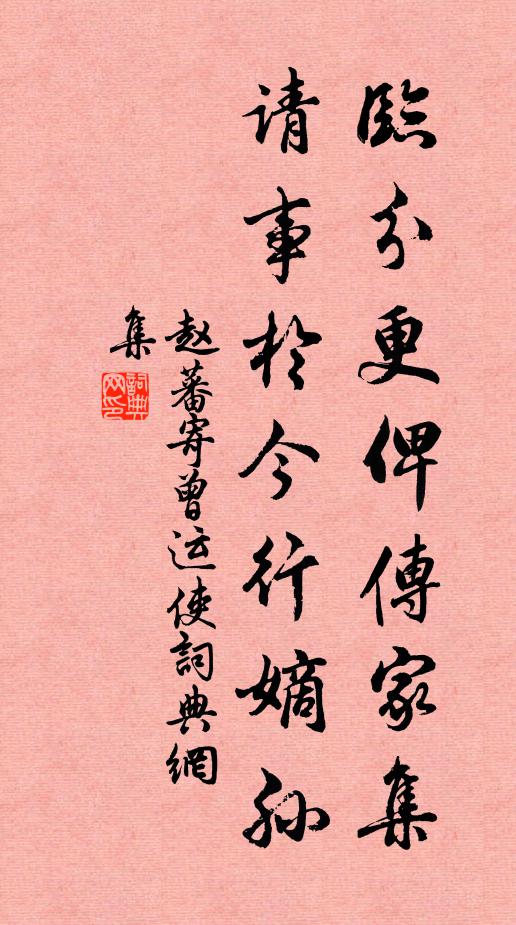 臨分更俾傳家集
请事於今行嫡孙
赵蕃寄曾运使詞典網
集
詞典网印